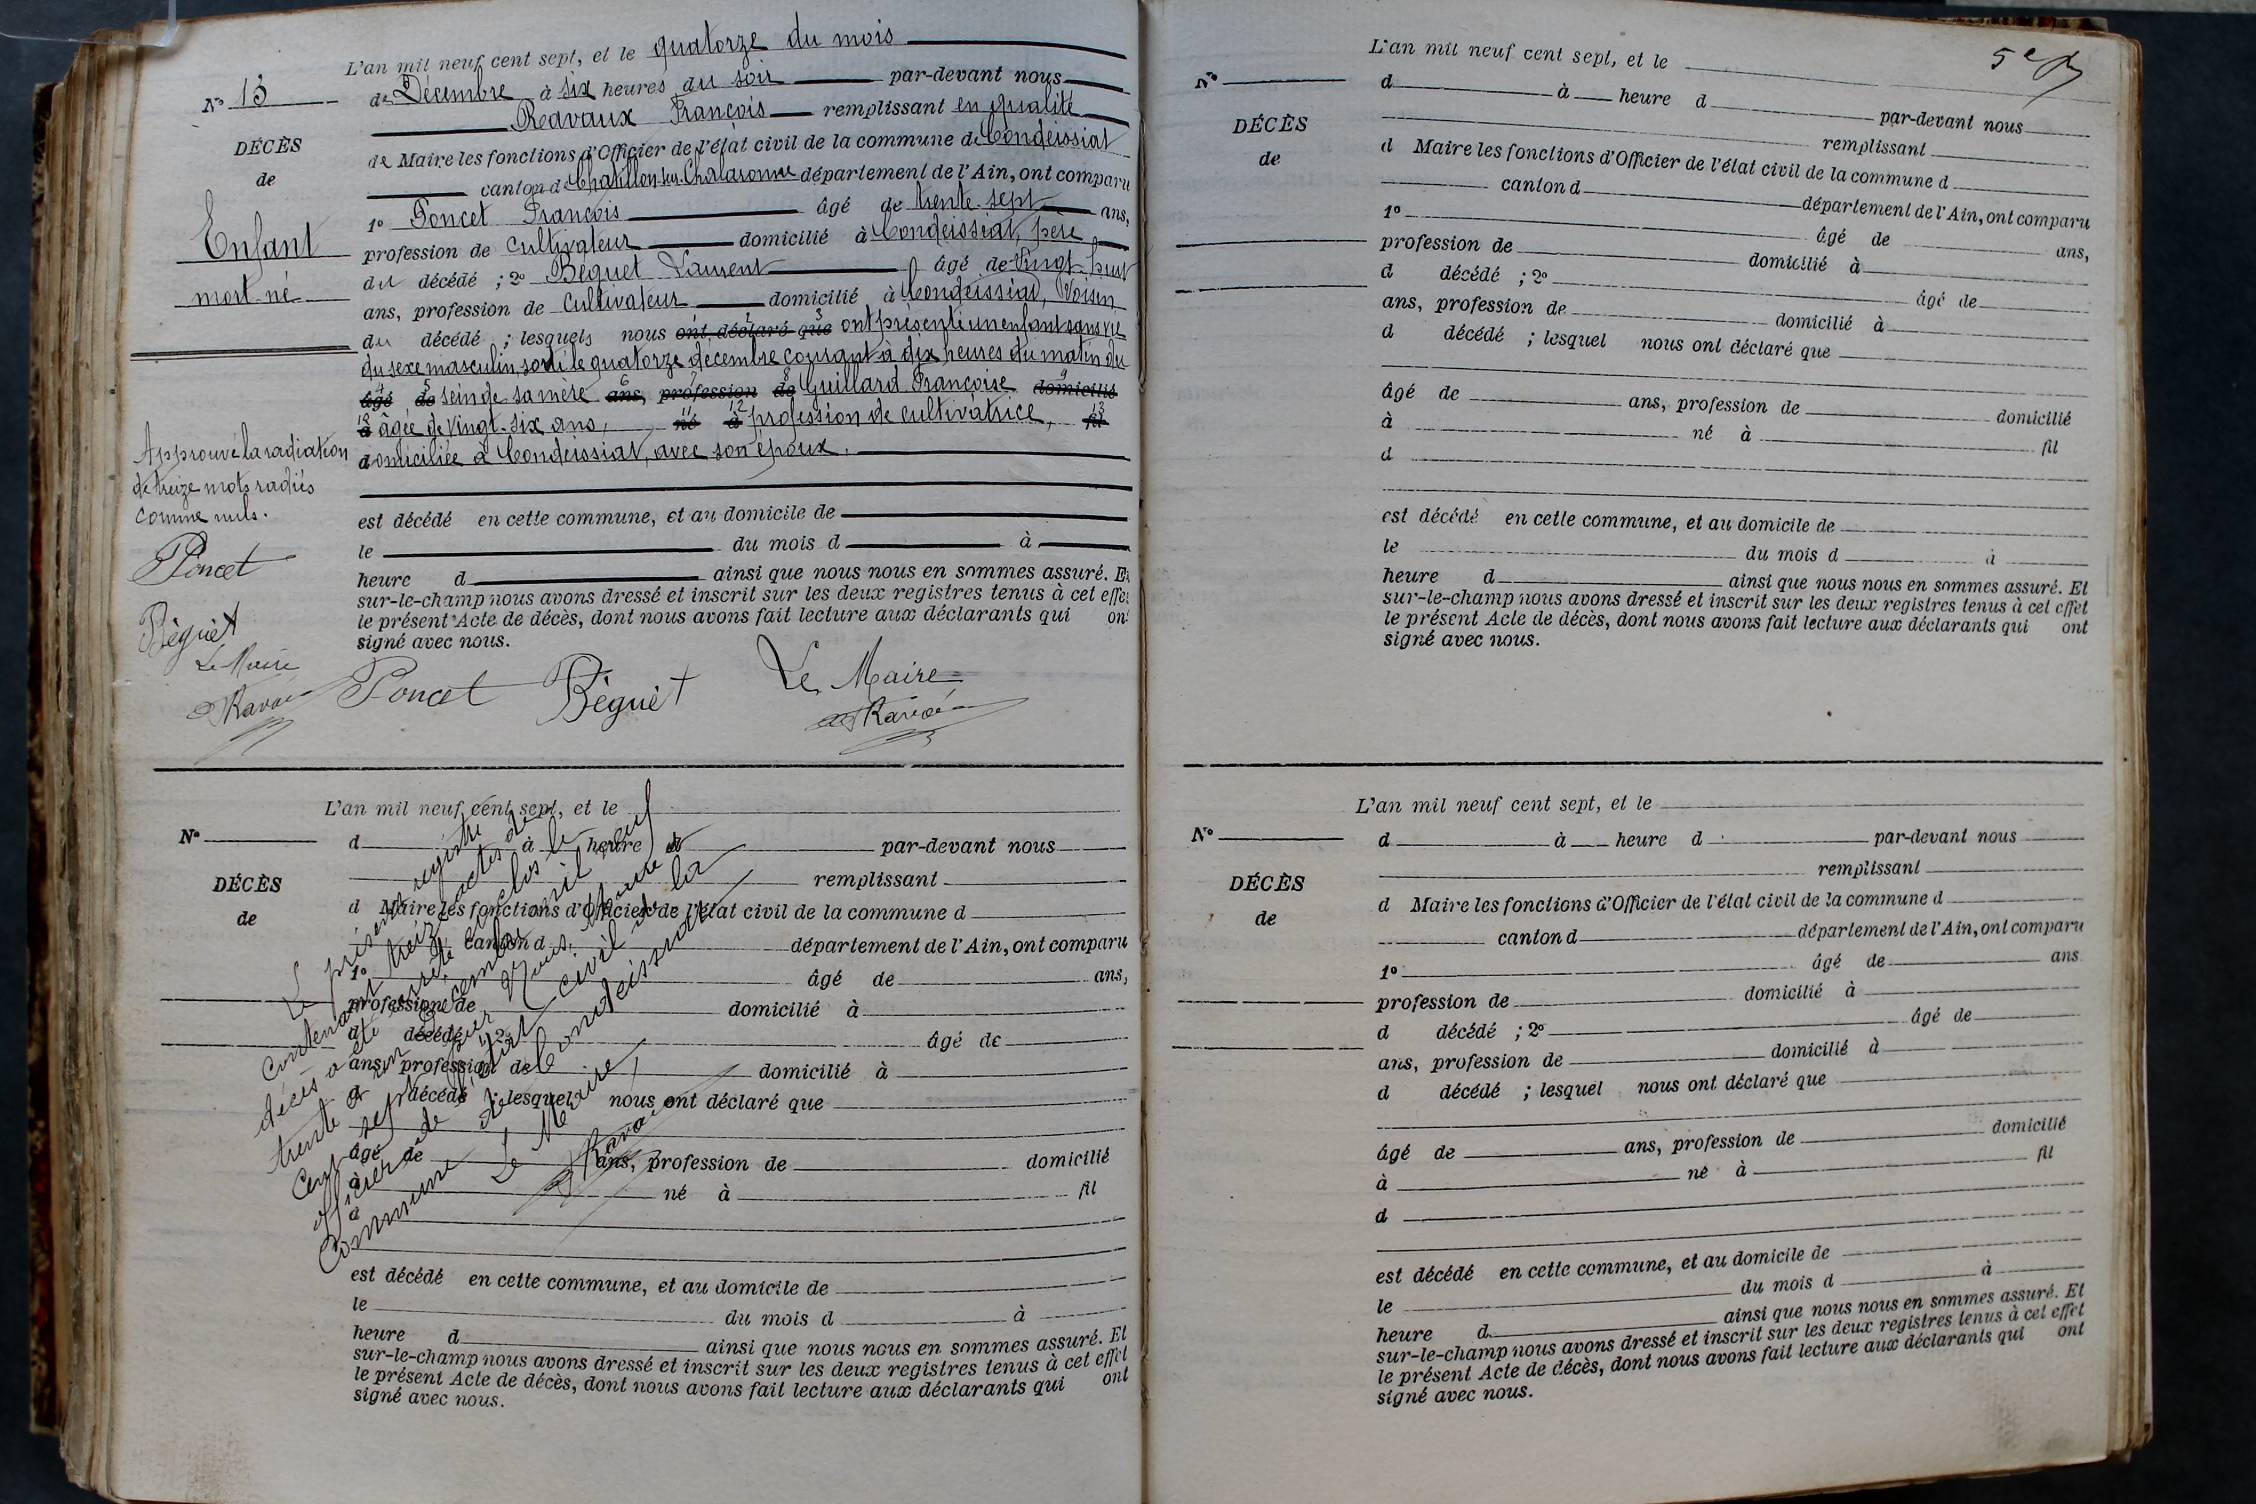 L'an mil neuf cent sept, et le quatorze du mois
N° 13
de Décembre à six heures du soir par-devant nous
Ravaux François remplissant en qualité
DÉCÈS
de Maire les fonctions d'Officier de l'état civil de la commune de Condeissiat
de
canton de Chatillon-sur-Chalaronne département de l'Ain, ont comparu
1° Poncet François âgé de trente-sept ans,
Enfant
profession de cultivateur domicilié à Condeissiat, père
du décédé ; 2° Béguet Laurent âgé de vingt-huit
mort-né
ans, profession de cultivateur domicilié à Condeissiat, voisin
du décédé ; lesquels nous ont déclaré que ont présenté un enfant sans vie
du sexe masculin, sorti le quatorze décembre courant à dix heures du matin du
âgé de sein de sa mère ans, profession de Guillard Françoise domicilié
à âgée de vingt-six ans, né à profession de cultivatrice, fil
domiciliée à Condeissiat, avec son époux.
Approuvé la radiation
de treize mots radiés
comme nuls.
est décédé en cette commune, et au domicile de
le du mois d à
heure d ainsi que nous nous en sommes assuré. Et
sur-le-champ nous avons dressé et inscrit sur les deux registres tenus à cet effet
le présent Acte de décès, dont nous avons fait lecture aux déclarants qui ont
signé avec nous.
Poncet
Béguet
Le Maire
Ravaux
Poncet Béguet Le Maire
Ravaux
L'an mil neuf cent sept, et le
N°
d à heure d par-devant nous
remplissant
DÉCÈS
d Maire les fonctions d'Officier de l'état civil de la commune d
de
canton d département de l'Ain, ont comparu
1° âgé de ans,
profession de domicilié à
d décédé ; 2° âgé de
ans, profession de domicilié à
d décédé ; lesquel nous ont déclaré que
âgé de ans, profession de domicilié
à né à fil
d
est décédé en cette commune, et au domicile de
le du mois d à
heure d ainsi que nous nous en sommes assuré. Et
sur-le-champ nous avons dressé et inscrit sur les deux registres tenus à cet effet
le présent Acte de décès, dont nous avons fait lecture aux déclarants qui ont
signé avec nous.
Le présent registre
contenant treize actes de
décès a été arrêté et clos le
trente et un décembre mil neuf
cent sept par nous, Maire
officier de l'état civil de la
commune de Condeissiat
Le Maire,
Ravaux
5e
L'an mil neuf cent sept, et le
N°
d à heure d par-devant nous
remplissant
DÉCÈS
d Maire les fonctions d'Officier de l'état civil de la commune d
de
canton d département de l'Ain, ont comparu
1° âgé de ans,
profession de domicilié à
d décédé ; 2° âgé de
ans, profession de domicilié à
d décédé ; lesquel nous ont déclaré que
âgé de ans, profession de domicilié
à né à fil
d
est décédé en cette commune, et au domicile de
le du mois d à
heure d ainsi que nous nous en sommes assuré. Et
sur-le-champ nous avons dressé et inscrit sur les deux registres tenus à cet effet
le présent Acte de décès, dont nous avons fait lecture aux déclarants qui ont
signé avec nous.
L'an mil neuf cent sept, et le
N°
d à heure d par-devant nous
remplissant
DÉCÈS
d Maire les fonctions d'Officier de l'état civil de la commune d
de
canton d département de l'Ain, ont comparu
1° âgé de ans
profession de domicilié à
d décédé ; 2° âgé de
ans, profession de domicilié à
d décédé ; lesquel nous ont déclaré que
âgé de ans, profession de domicilié
à né à fil
d
est décédé en cette commune, et au domicile de
le du mois d à
heure d ainsi que nous nous en sommes assuré. Et
sur-le-champ nous avons dressé et inscrit sur les deux registres tenus à cet effet
le présent Acte de décès, dont nous avons fait lecture aux déclarants qui ont
signé avec nous.